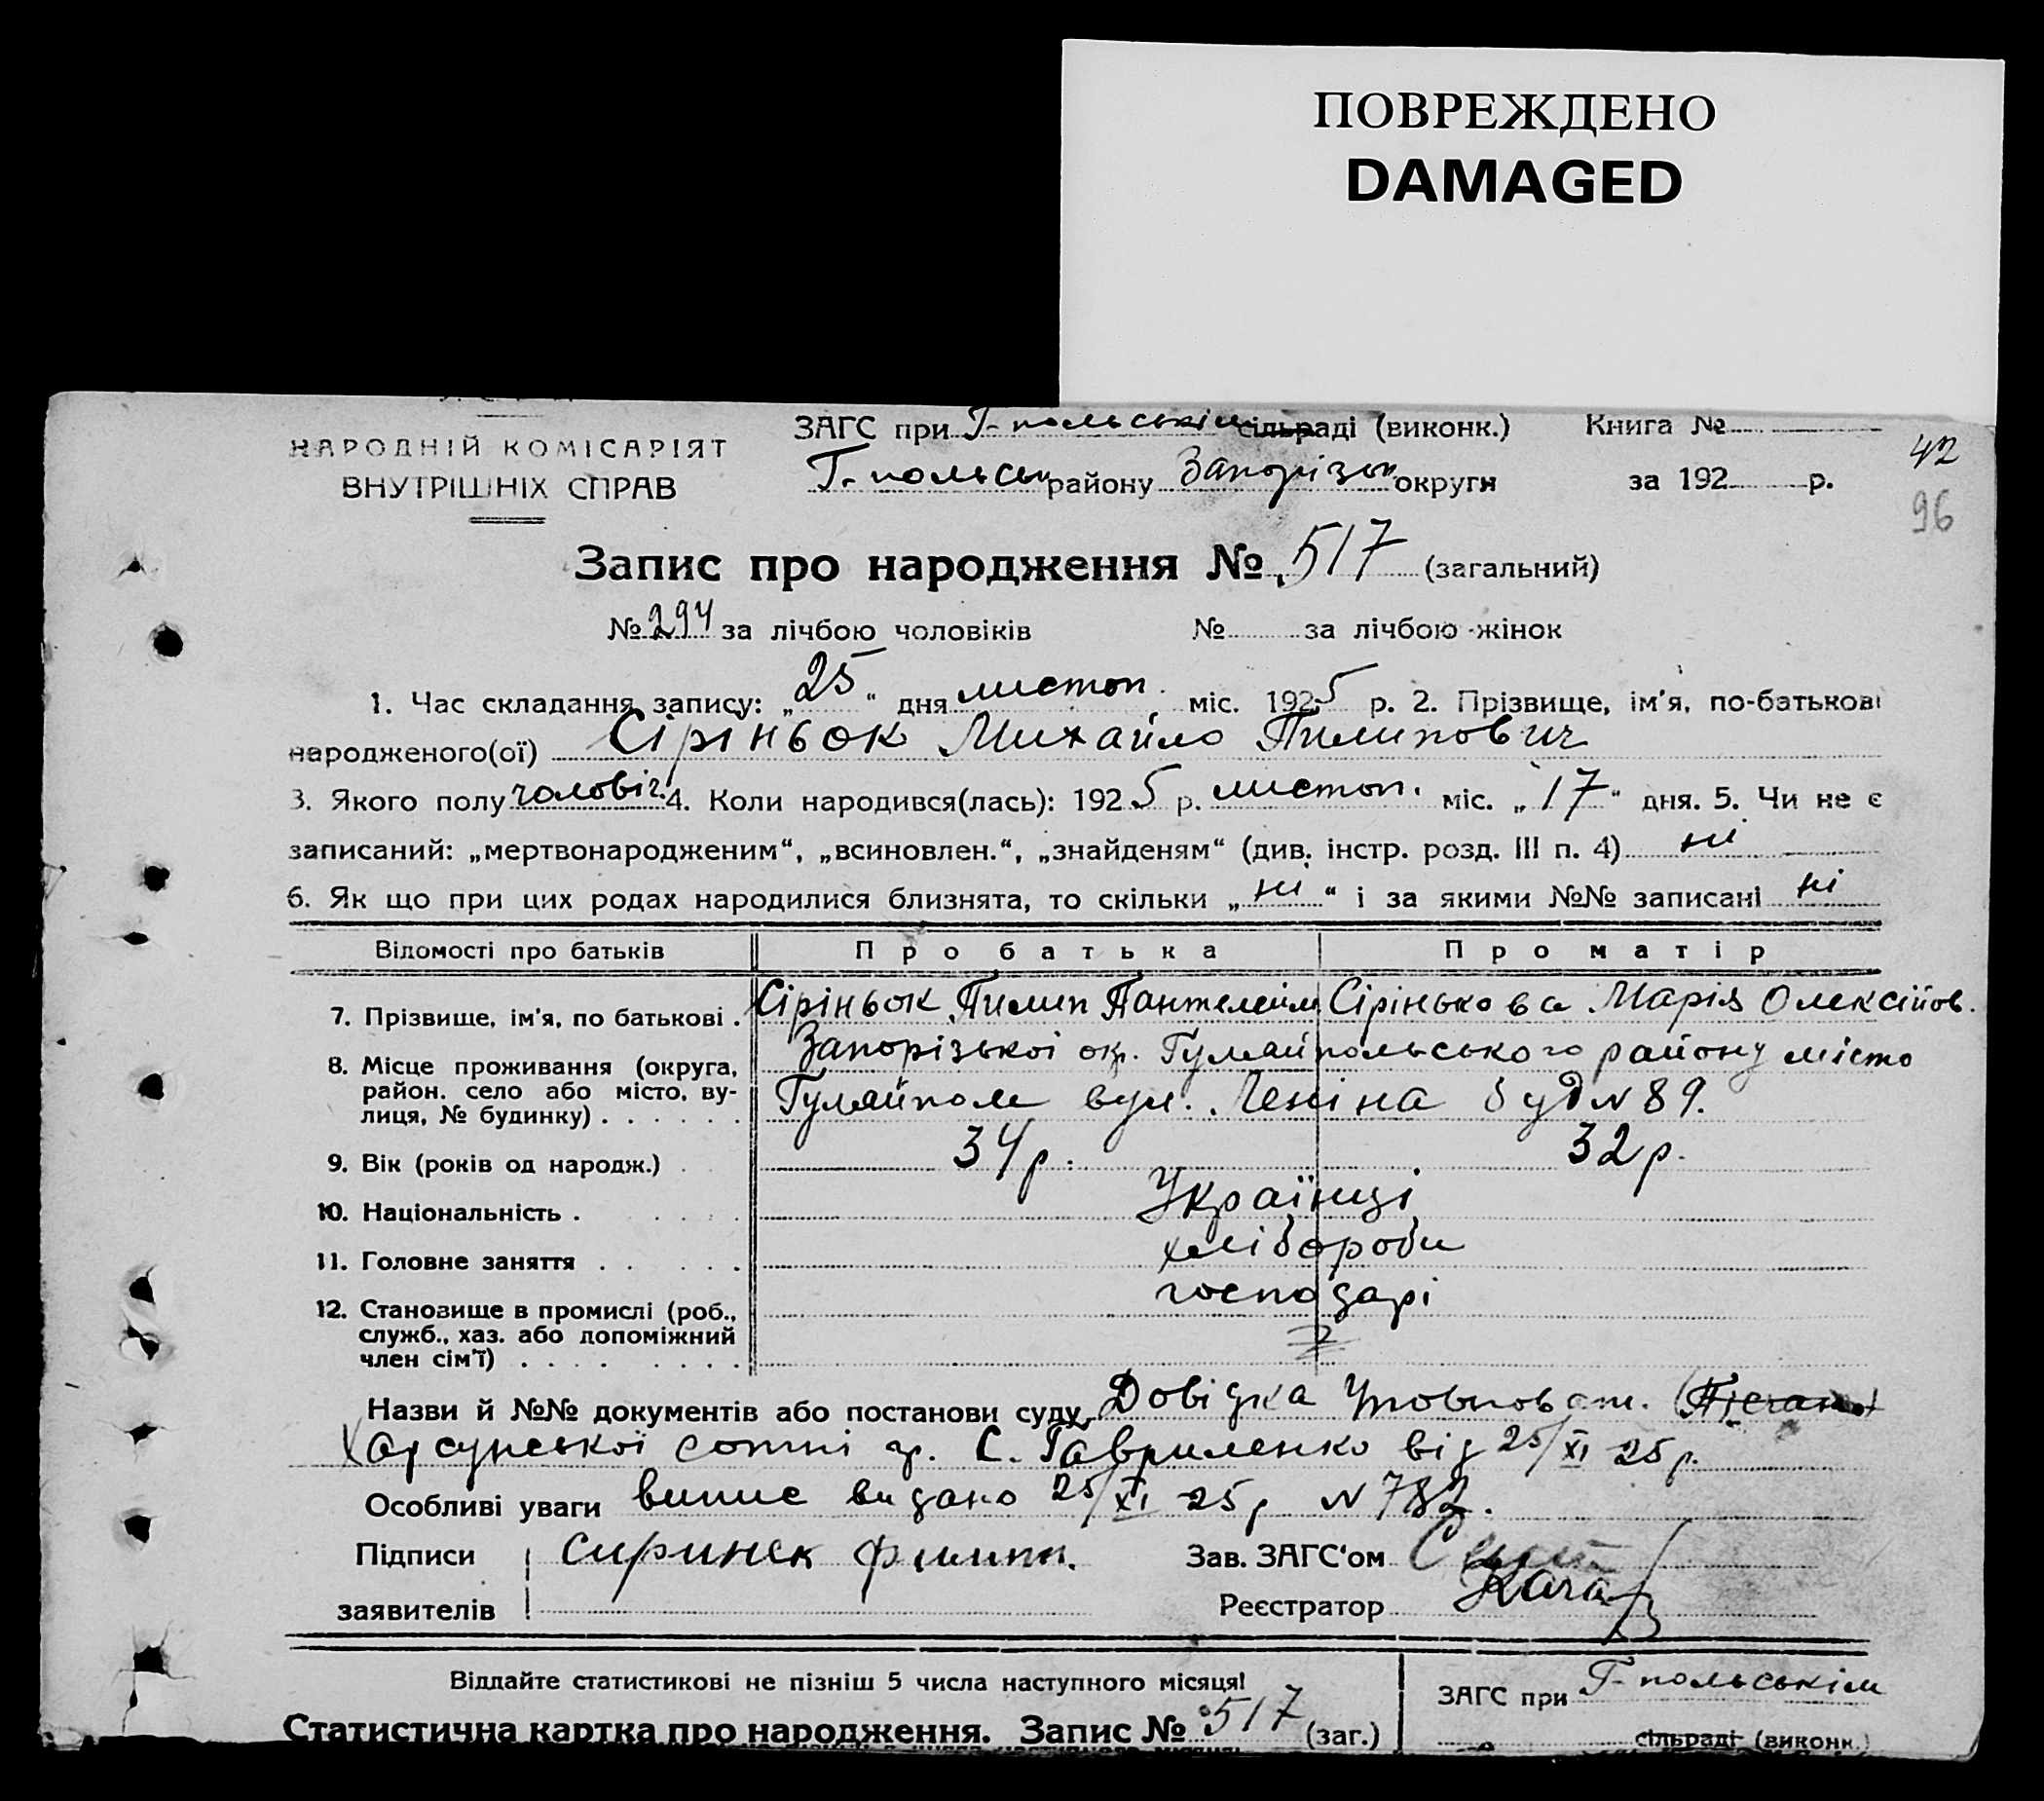 ПОВРЕЖДЕНО
DAMAGED
НАРОДНІЙ КОМІСАРІЯТ
ВНУТРІШНІХ СПРАВ
ЗАГС при Г-польськім сільраді (виконк.) Книга №
Г-польськ району Запорізьк округи за 192 р.
42
96
Запис про народження № 517 (загальний)
№ 294 за лічбою чоловіків № за лічбою жінок
1. Час складання запису: „25“ дня листоп. міс. 1925 р. 2. Прізвище, ім'я, по-батькові
народженого(ої) Сіріньок Михайло Пилипович
3. Якого полу чоловіч. 4. Коли народився(лась): 1925 р. листоп. міс. „17“ дня. 5. Чи не є
записаний: „мертвонародженим“, „всиновлен.“, „знайденям“ (див. інстр. розд. III п. 4) ні
6. Як що при цих родах народилися близнята, то скільки „ні“ і за якими №№ записані ні
Відомості про батьків Про батька Про матір
7. Прізвище, ім'я, по батькові . Сіріньок Пилип Пантелейм Сірінькова Марія Олексійов.
8. Місце проживання (округа, район. село або місто, вулиця, № будинку) . . . . . . Запорізької окр. Гуляйпольського району місто
Гуляйполе вул. Леніна буд № 89.
9. Вік (років од народж.) 34 р. 32 р.
10. Національність . Українці
11. Головне заняття . . хлібороби
12. Становище в промислі (роб., служб., хаз. або допоміжний член сім'ї) . . . . господарі
Назви й №№ документів або постанови суду Довідка Уповноваж.
сотні гр. С. Гавриленко від 25/XI 25 р.
Особливі уваги випис видано 25/XI 25 р № 782.
Підписи сиринек филип. Зав. ЗАГС'ом
заявителів Реєстратор
Віддайте статистикові не пізніш 5 числа наступного місяця!
Статистична картка про народження. Запис № 517 (заг.)
ЗАГС при Г-польськім
сільраді (виконк.)